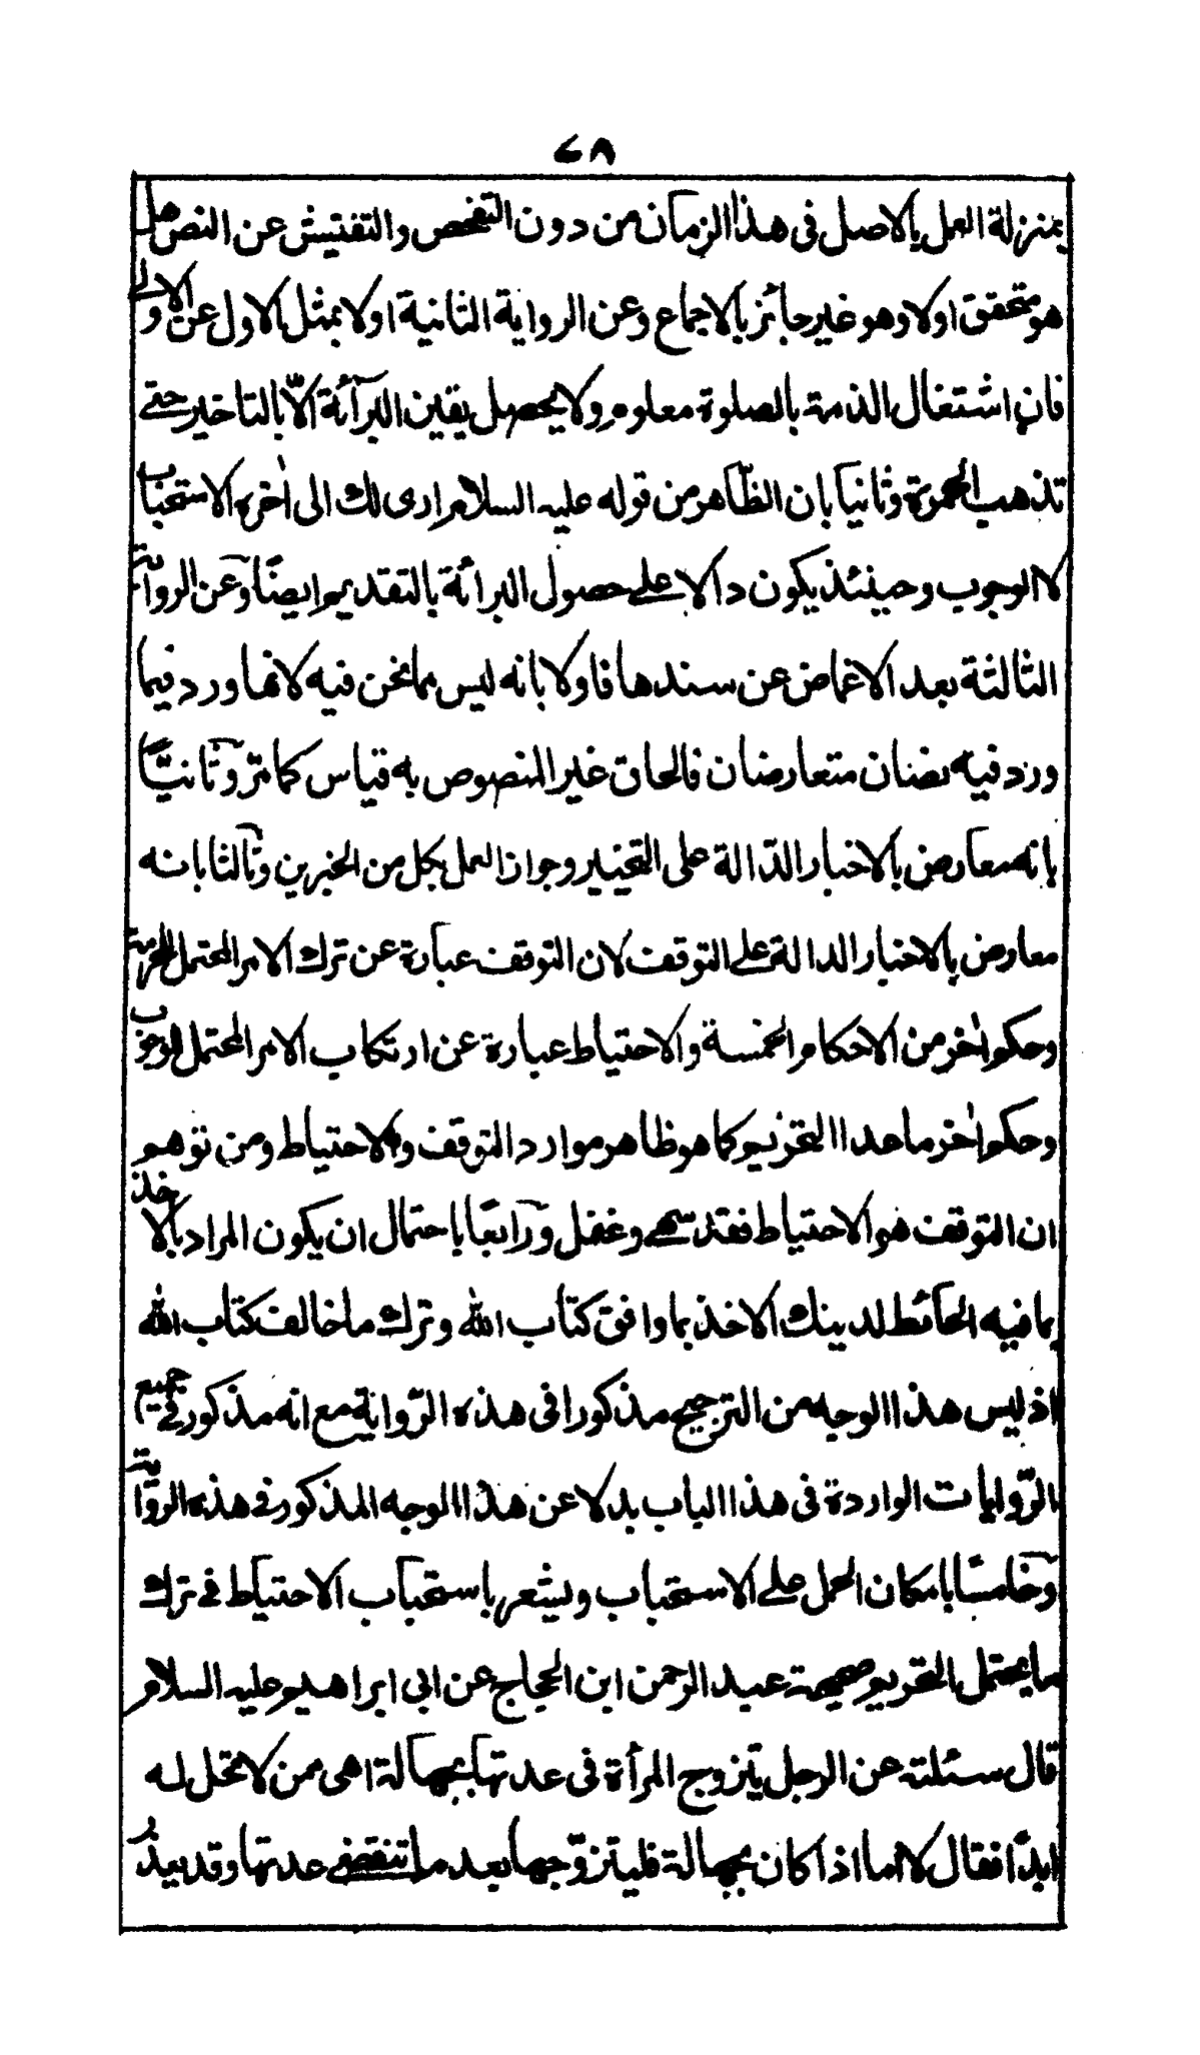 ٧٨
بمنزلة العمل بالاصل فى هذا الزمان من دون التفحص والتفتيش عن النص هل
هو متحقق اولا وهو غير جائز بالاجماع وعن الرواية الثانية اولا بمثل الاول عن الاولى
فان اشتغال الذمة بالصلوة معلوم ولا يحصل يقين البرآئة الّا بالتاخير حتى
تذهب الحمرة وثانيا بان الظّاهر من قوله عليه السلام ارى لك الى اٰخره الاستحباب
لا الوجوب وحينئذ يكون دالا على حصول البرائة بالتقديم ايضًا وعن الرواية
الثالثة بعد الاغماض عن سندها فاولا بانه ليس مما نحن فيه لانها ورد فيما
ورد فيه نصان متعارضان فالحاق غير المنصوص به قياس كما مرّ وثانيًا
بانه معارض بالاخبار الدّالة على التخيير وجواز العمل بكل من الخبرين وثالثا بانه
معارض بالاخبار الدالة على التوقف لان التوقف عبارة عن ترك الامر المحتمل للحرمة
وحكم اٰخر من الاحكام الخمسة والاحتياط عبارة عن ارتكاب الامر المحتمل الوجوب
وحكم اٰخر ما عدا التحريم كما هو ظاهر موارد التوقف والاحتياط ومن توهم
ان التوقف هو الاحتياط فقد سهى وغفل ورابعًا باحتمال ان يكون المراد بالاخذ
بما فيه الحآئط لدينك الاخذ بما وافق كتاب الله وترك ما خالف كتاب الله
اذ ليس هذا الوجه من الترجيح مذكورا فى هذه الرّواية مع انه مذكور فى جميع
الرّوايات الواردة فى هذا الباب بدلا عن هذا الوجه المذكور فى هذه الرّواية
وخامسًا بامكان الحمل على الاستحباب ويشعر باستحباب الاحتياط فى ترك
ما يحتمل التحريم صحيحة عبد الرحمن ابن الحجاج عن ابى ابراهيم عليه السلام
قال سئلته عن الرجل يتزوج المرأة فى عدتها بجهالة اهى ممن لا تحل له
ابدًا فقال لا اما اذا كان بجهالة فليتزوّجها بعد ما تنقضى عدتها وقد يعذر